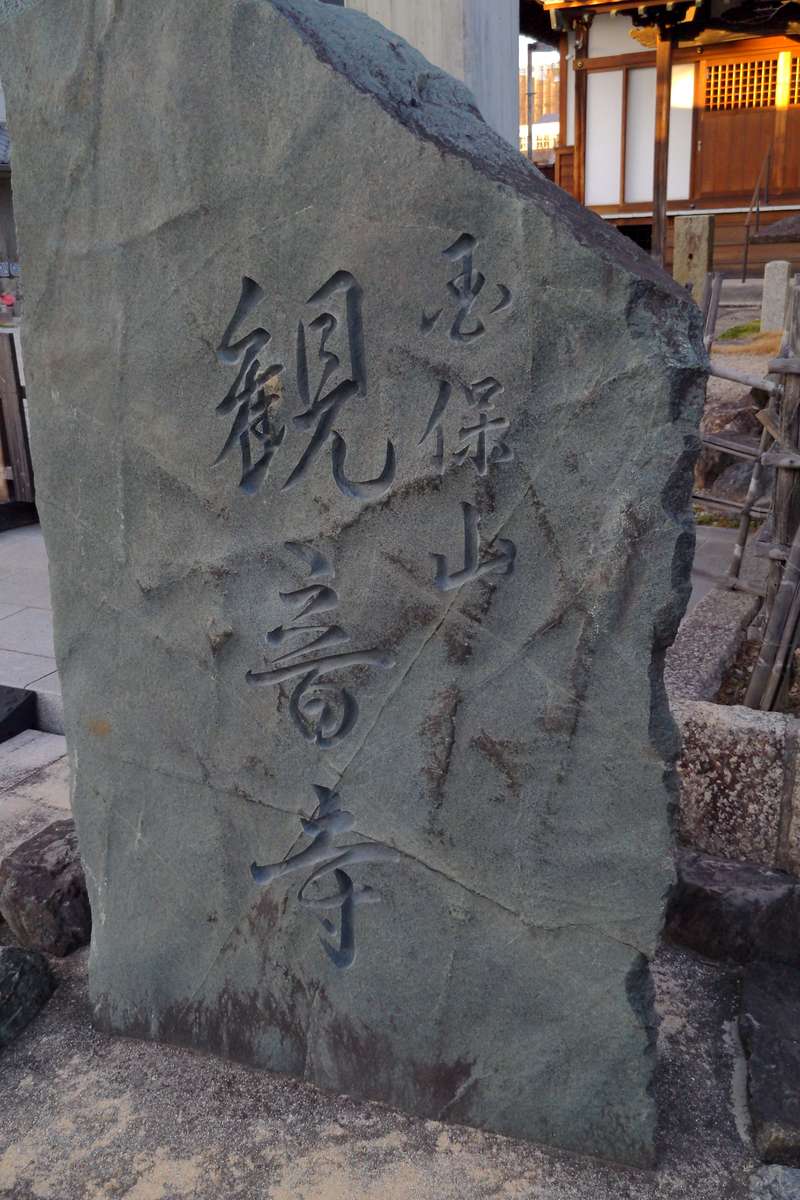 保山
観音寺